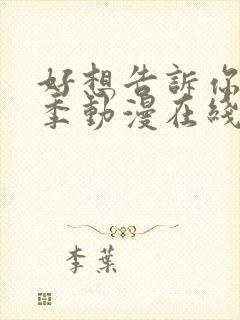 好想告訴你
季動漫在綫
李葉